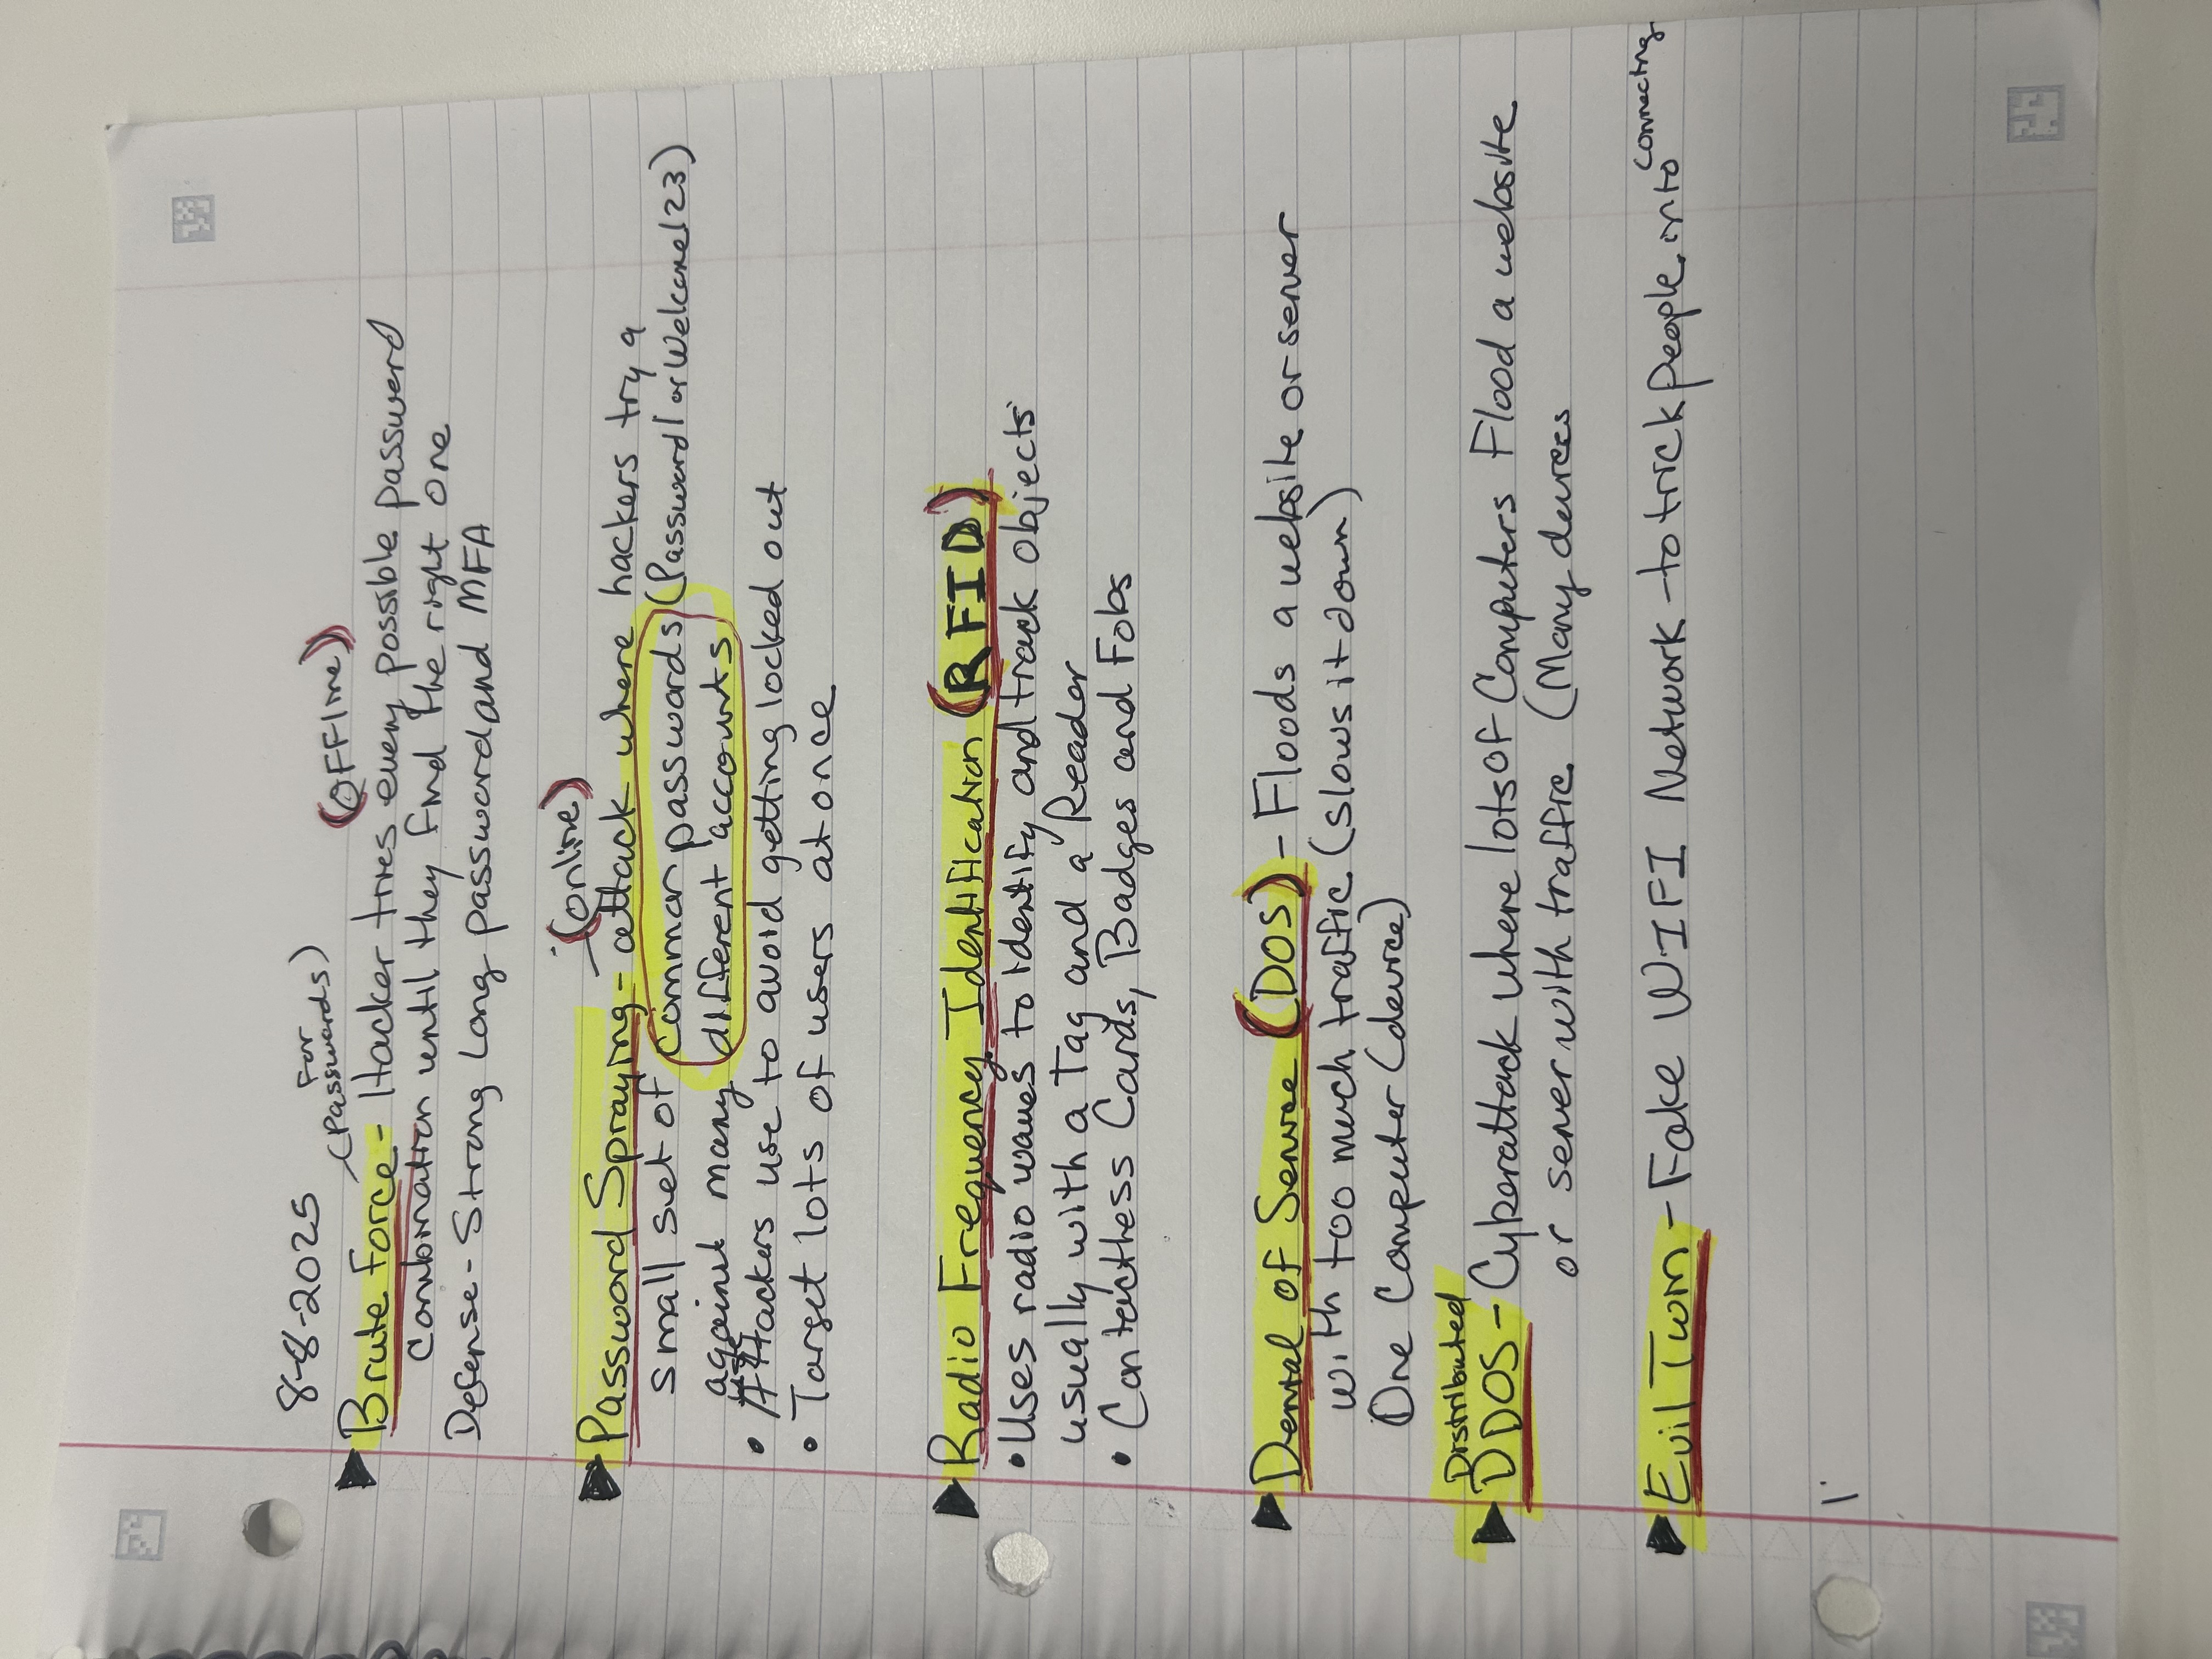 8-8-2025
(For Passwords)
(OFFline)
Brute Force - Hacker tries every possible password
Combination until they find the right one
Defense - Strong Long password and MFA
(online)
Password Spraying - attack where hackers try a
small set of common passwords (Password1 or Welcome123)
against many different accounts
• Attackers use to avoid getting locked out
• Target lots of users at once
Radio Frequency Identification (RFID)
• Uses radio waves to identify and track objects
usually with a Tag and a Reader
• Contactless Cards, Badges and Fobs
Denial of Service (DOS) - Floods a website or server
with too much traffic (slows it down)
One Computer (device)
Distributed
DDOS - Cyberattack where lots of Computers Flood a website
or server with traffic (Many devices
Evil Twin - Fake WIFI Network - to trick people into connecting